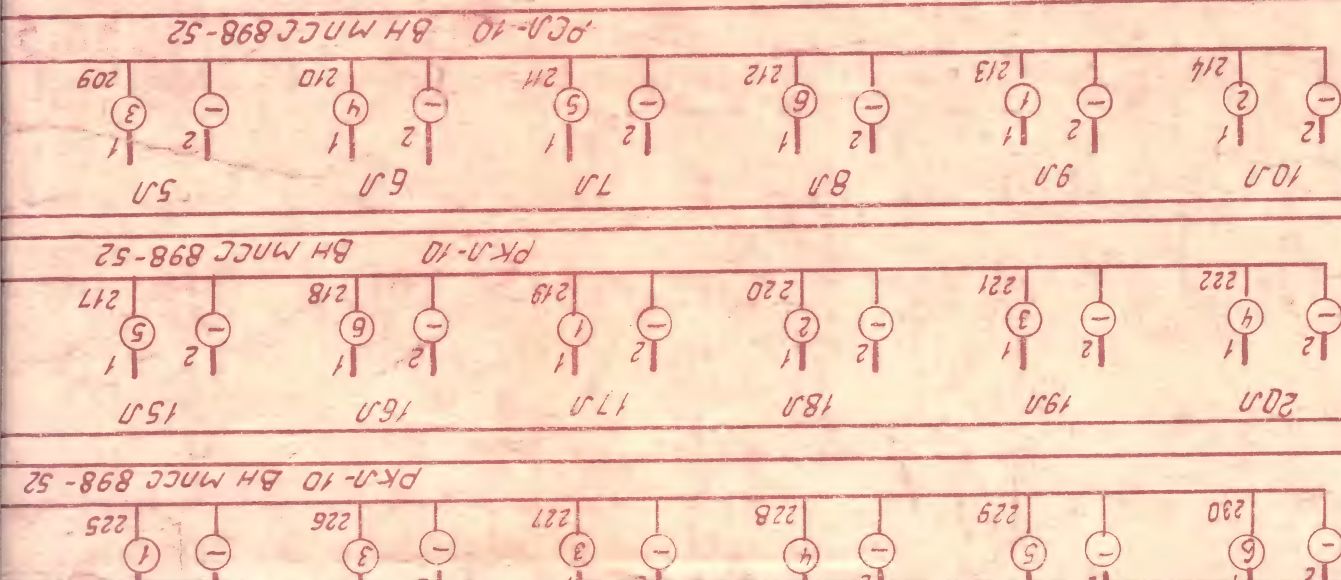 – 6 – 5 – 4 – 3 – 3 – 1
230 229 228 227 226 225
РКЛ-10 ВН МЛСС 898-52
20Л 19Л 18Л 17Л 16Л 15Л
2 1 2 1 2 1 2 1 2 1 2 1
– 4 – 3 – 2 – 1 – 6 – 5
222 221 220 219 218 217
РКЛ-10 ВН МЛСС 898-52
10Л 9Л 8Л 7Л 6Л 5Л
2 1 2 1 2 1 2 1 2 1 2 1
– 2 – 1 – 6 – 5 – 4 – 3
214 213 212 211 210 209
РСЛ-10 ВН МЛСС 898-52